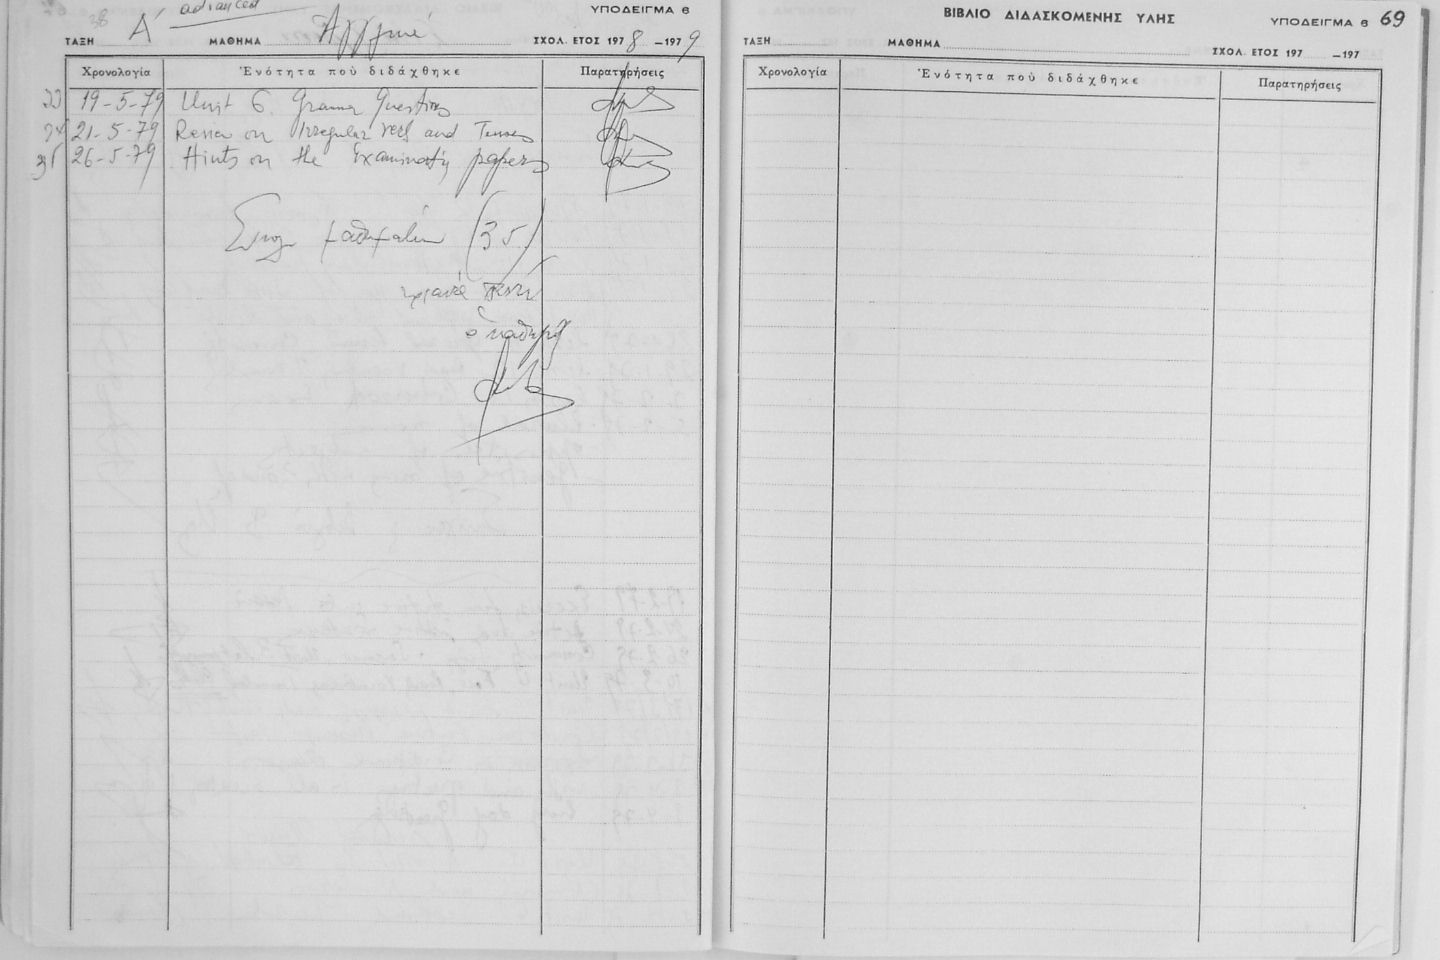 38 Α΄ advanced Αγγλικά ΥΠΟΔΕΙΓΜΑ 6
ΤΑΞΗ ΜΑΘΗΜΑ ΣΧΟΛ. ΕΤΟΣ 1978 —1979
Χρονολογία Ἑνότητα ποὺ διδάχθηκε Παρατηρήσεις
33 19-5-79 Unit 6. Gramma Questions
34 21-5-79 on Irregular verb and Tenses
35 26-5-79 Hints on the Examination papers
μαθημάτων (35)
τριάντα πέντε
ὁ καθηγητής
ΒΙΒΛΙΟ ΔΙΔΑΣΚΟΜΕΝΗΣ ΥΛΗΣ ΥΠΟΔΕΙΓΜΑ 6 69
ΤΑΞΗ ΜΑΘΗΜΑ ΣΧΟΛ. ΕΤΟΣ 197 —197
Χρονολογία Ἑνότητα ποὺ διδάχθηκε Παρατηρήσεις